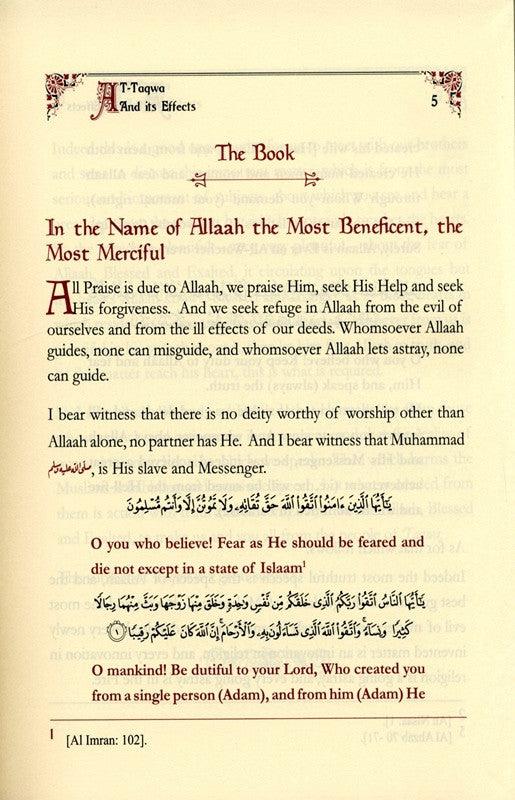 AT-Taqwa
And its Effects
5
The Book
In the Name of Allaah the Most Beneficent, the
Most Merciful
All Praise is due to Allaah, we praise Him, seek His Help and seek
His forgiveness. And we seek refuge in Allaah from the evil of
ourselves and from the ill effects of our deeds. Whomsoever Allaah
guides, none can misguide, and whomsoever Allaah lets astray, none
can guide.
I bear witness that there is no deity worthy of worship other than
Allaah alone, no partner has He. And I bear witness that Muhammad
صلى الله عليه وسلم, is His slave and Messenger.
يَٰٓأَيُّهَا ٱلَّذِينَ ءَامَنُوا۟ ٱتَّقُوا۟ ٱللَّهَ حَقَّ تُقَاتِهِۦ وَلَا تَمُوتُنَّ إِلَّا وَأَنتُم مُّسْلِمُونَ
O you who believe! Fear as He should be feared and
die not except in a state of Islaam¹
يَٰٓأَيُّهَا ٱلنَّاسُ ٱتَّقُوا۟ رَبَّكُمُ ٱلَّذِى خَلَقَكُم مِّن نَّفْسٍ وَٰحِدَةٍ وَخَلَقَ مِنْهَا زَوْجَهَا وَبَثَّ مِنْهُمَا رِجَالًا
كَثِيرًا وَنِسَآءً ۚ وَٱتَّقُوا۟ ٱللَّهَ ٱلَّذِى تَسَآءَلُونَ بِهِۦ وَٱلْأَرْحَامَ ۚ إِنَّ ٱللَّهَ كَانَ عَلَيْكُمْ رَقِيبًا ١
O mankind! Be dutiful to your Lord, Who created you
from a single person (Adam), and from him (Adam) He
1 [Al Imran: 102].